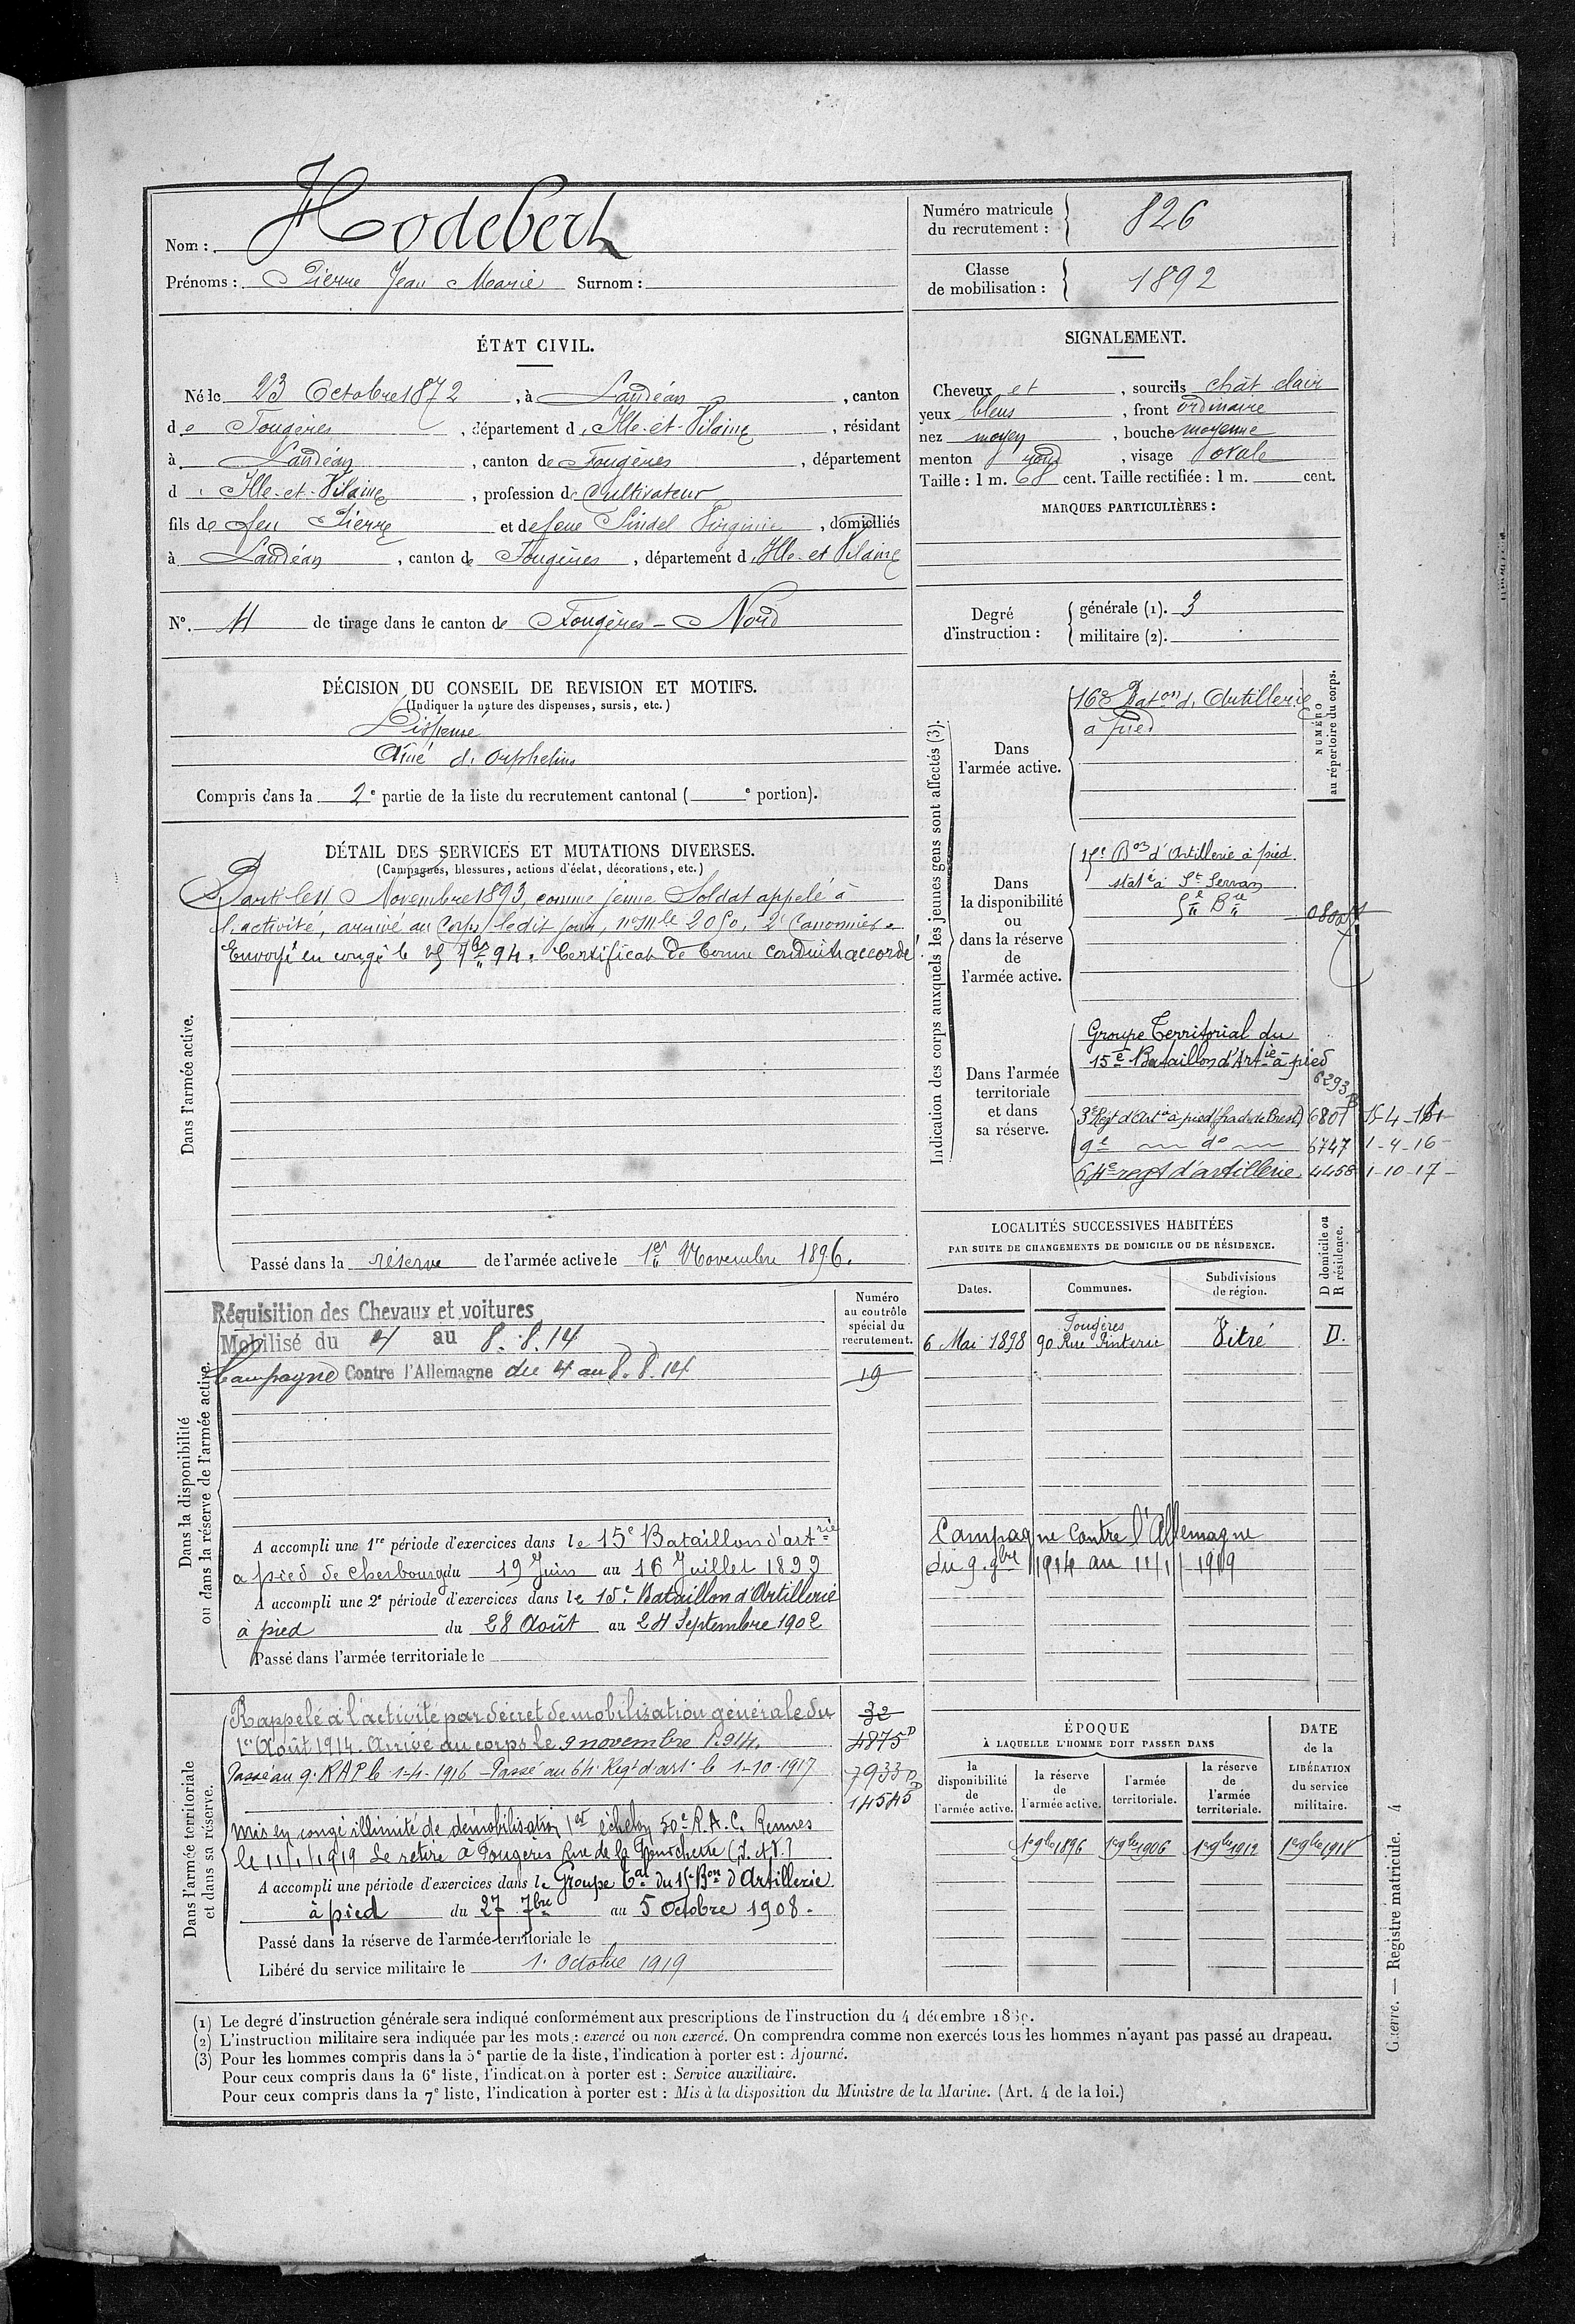 Nom : Hodebert
Prénoms : Pierre Jean Marie Surnom :
Numéro matricule du recrutement : 826
Classe de mobilisation : 1892
ÉTAT CIVIL.
Né le 23 Octobre 1872, à Landéan, canton
de Fougères, département d'Ille-et-Vilaine, résidant
à Landéan, canton de Fougères, département
d'Ille-et-Vilaine, profession de Cultivateur
fils de feu Pierre et de feue Virginie, domiciliés
à Landéan, canton de Fougères, département d'Ille-et-Vilaine
N°. de tirage dans le canton de Fougères-Nord
SIGNALEMENT.
Cheveux et, sourcils chât clair
yeux bleus, front ordinaire
nez moyen, bouche moyenne
menton rond, visage ovale
Taille : 1 m. 68 cent. Taille rectifiée : 1 m. cent.
MARQUES PARTICULIÈRES :
Degré d'instruction : générale (1). 3
militaire (2).
DÉCISION DU CONSEIL DE REVISION ET MOTIFS.
(Indiquer la nature des dispenses, sursis, etc.)
Dispensé
Aîné d'orphelins
Compris dans la 2e partie de la liste du recrutement cantonal ( e portion).
DÉTAIL DES SERVICES ET MUTATIONS DIVERSES.
(Campagnes, blessures, actions d'éclat, décorations, etc.)
Dans l'armée active.
Parti le 11 Novembre 1893, comme jeune Soldat appelé à
l'activité, arrivé au Corps ledit jour, n° Mle 2050. 2e Canonnier.
Envoyé en congé le 25 7bre 94. Certificat de bonne conduite accordé
Passé dans la réserve de l'armée active le 1er Novembre 1896.
Indication des corps auxquels les jeunes gens sont affectés (3).
NUMÉRO au répertoire du corps.
Dans l'armée active.
16e Baton d'Artillerie
à pied
Dans la disponibilité ou dans la réserve de l'armée active.
15e Bon d'Artillerie à pied.
staté à St Servan
5e Bie
Dans l'armée territoriale et dans sa réserve.
Groupe Territorial du
15e Bataillon d'Artie à pied
6293
3e Régt d'Arte à pied (frac de Brest) 6801
9e do 6747 1-4-16
64e regt d'artillerie. 4458 1-10-17
LOCALITÉS SUCCESSIVES HABITÉES
PAR SUITE DE CHANGEMENTS DE DOMICILE OU DE RÉSIDENCE.
Dates. Communes. Subdivisions de région. D domicile ou R résidence.
6 Mai 1898 Fougères 90 Rue Pinterie Vitré D.
Campagne Contre l'Allemagne
du 9.9bre 1914 au 11/1/1919
Dans la disponibilité ou dans la réserve de l'armée active.
Numéro au contrôle spécial du recrutement.
19
Réquisition des Chevaux et voitures
Mobilisé du 4 au 8.8.14
Campagne Contre l'Allemagne du 4 au 8.8.14
A accompli une 1re période d'exercices dans le 15e Bataillon d'artrie
à pied de Cherbourg du 19 Juin au 16 Juillet 1899
A accompli une 2e période d'exercices dans le 15e Bataillon d'Artillerie
à pied du 28 Août au 24 Septembre 1902
Passé dans l'armée territoriale le
Dans l'armée territoriale et dans sa réserve.
Rappelé à l'activité par décret de mobilisation générale du
1er Août 1914. Arrivé au corps le 9 novembre 1914.
Passé au 9e RAP le 1-4-1916 - Passé au 64e Régt d'art. le 1-10-1917
Mis en congé illimité de démobilisation 1er échelon 50e R.A.C. Rennes
le 11/1/1919 Se retire à Fougères Rue de la Fourcherie (I. et V.)
A accompli une période d'exercices dans le Groupe Tal du 15e Bon d'Artillerie
à pied du 27 7bre au 5 Octobre 1908.
Passé dans la réserve de l'armée territoriale le
Libéré du service militaire le 1er Octobre 1919
32
4875 D
7933 D
14545 D
ÉPOQUE
À LAQUELLE L'HOMME DOIT PASSER DANS
la disponibilité de l'armée active. la réserve de l'armée active. l'armée territoriale. la réserve de l'armée territoriale.
DATE de la LIBÉRATION du service militaire.
1er 9bre 1896 1er 9bre 1906 1er 9bre 1912 1er 9bre 1918
(1) Le degré d'instruction générale sera indiqué conformément aux prescriptions de l'instruction du 4 décembre
(2) L'instruction militaire sera indiquée par les mots : exercé ou non exercé. On comprendra comme non exercés tous les hommes n'ayant pas passé au drapeau.
(3) Pour les hommes compris dans la 5e partie de la liste, l'indication à porter est : Ajourné.
Pour ceux compris dans la 6e liste, l'indication à porter est : Service auxiliaire.
Pour ceux compris dans la 7e liste, l'indication à porter est : Mis à la disposition du Ministre de la Marine. (Art. 4 de la loi.)
Guerre. — Registre matricule. 4